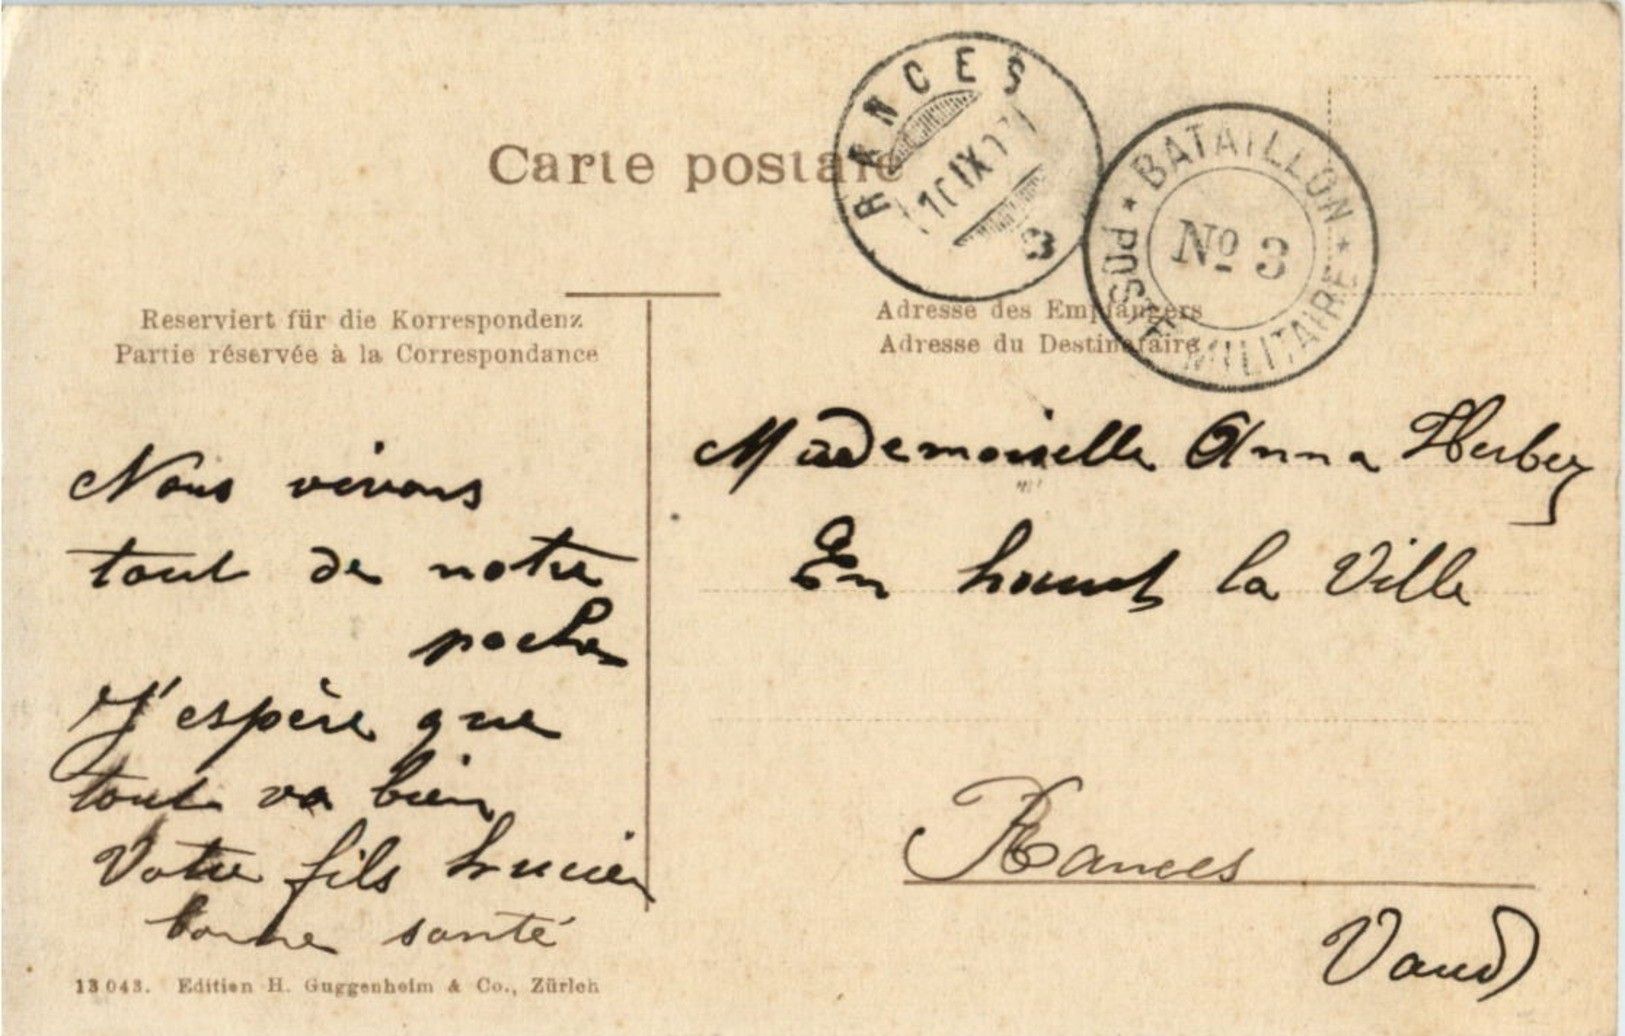 Carte postale
RANCES
10 IX 07
3
BATAILLON
No 3
POSTE MILITAIRE
Reserviert für die Korrespondenz
Partie réservée à la Correspondance
Adresse des Empfängers
Adresse du Destinataire
Nous vivons
tout de notre
poche
J'espère que
tout va bien
Votre fils Lucien
bonne santé
Mademoiselle Anna
En haut la Ville
Rances
Vaud
13 043. Edition H. Guggenheim & Co., Zürich